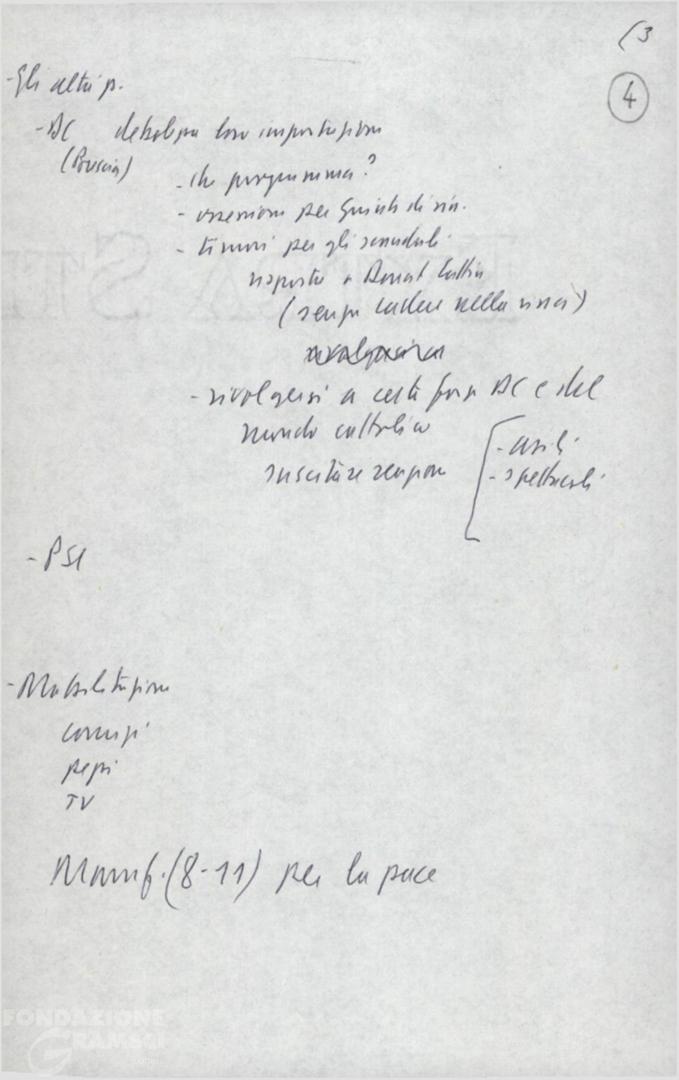 (3
4
- Gli altri p.
- DC debolezza loro impostazione
(Brescia)
- che programma?
- ossessione per Giunte di sin.
- timori per gli scandali
risposta a Donat Cattin
(senza cadere nella rissa)
- rivolgersi a certe forze DC e del
mondo cattolico
suscitare reazioni
- asili
- spettacoli
- PSI
- Mobilitazione
comizi
pezzi
TV
Manif. (8-11) per la pace
FONDAZIONE
GRAMSCI